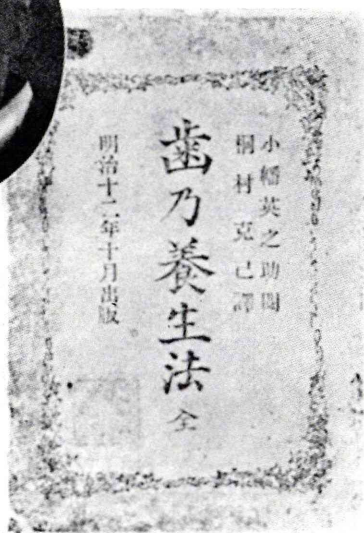 小幡英之助閲
桐村克己譯
歯乃養生法 全
明治十二年十月出版